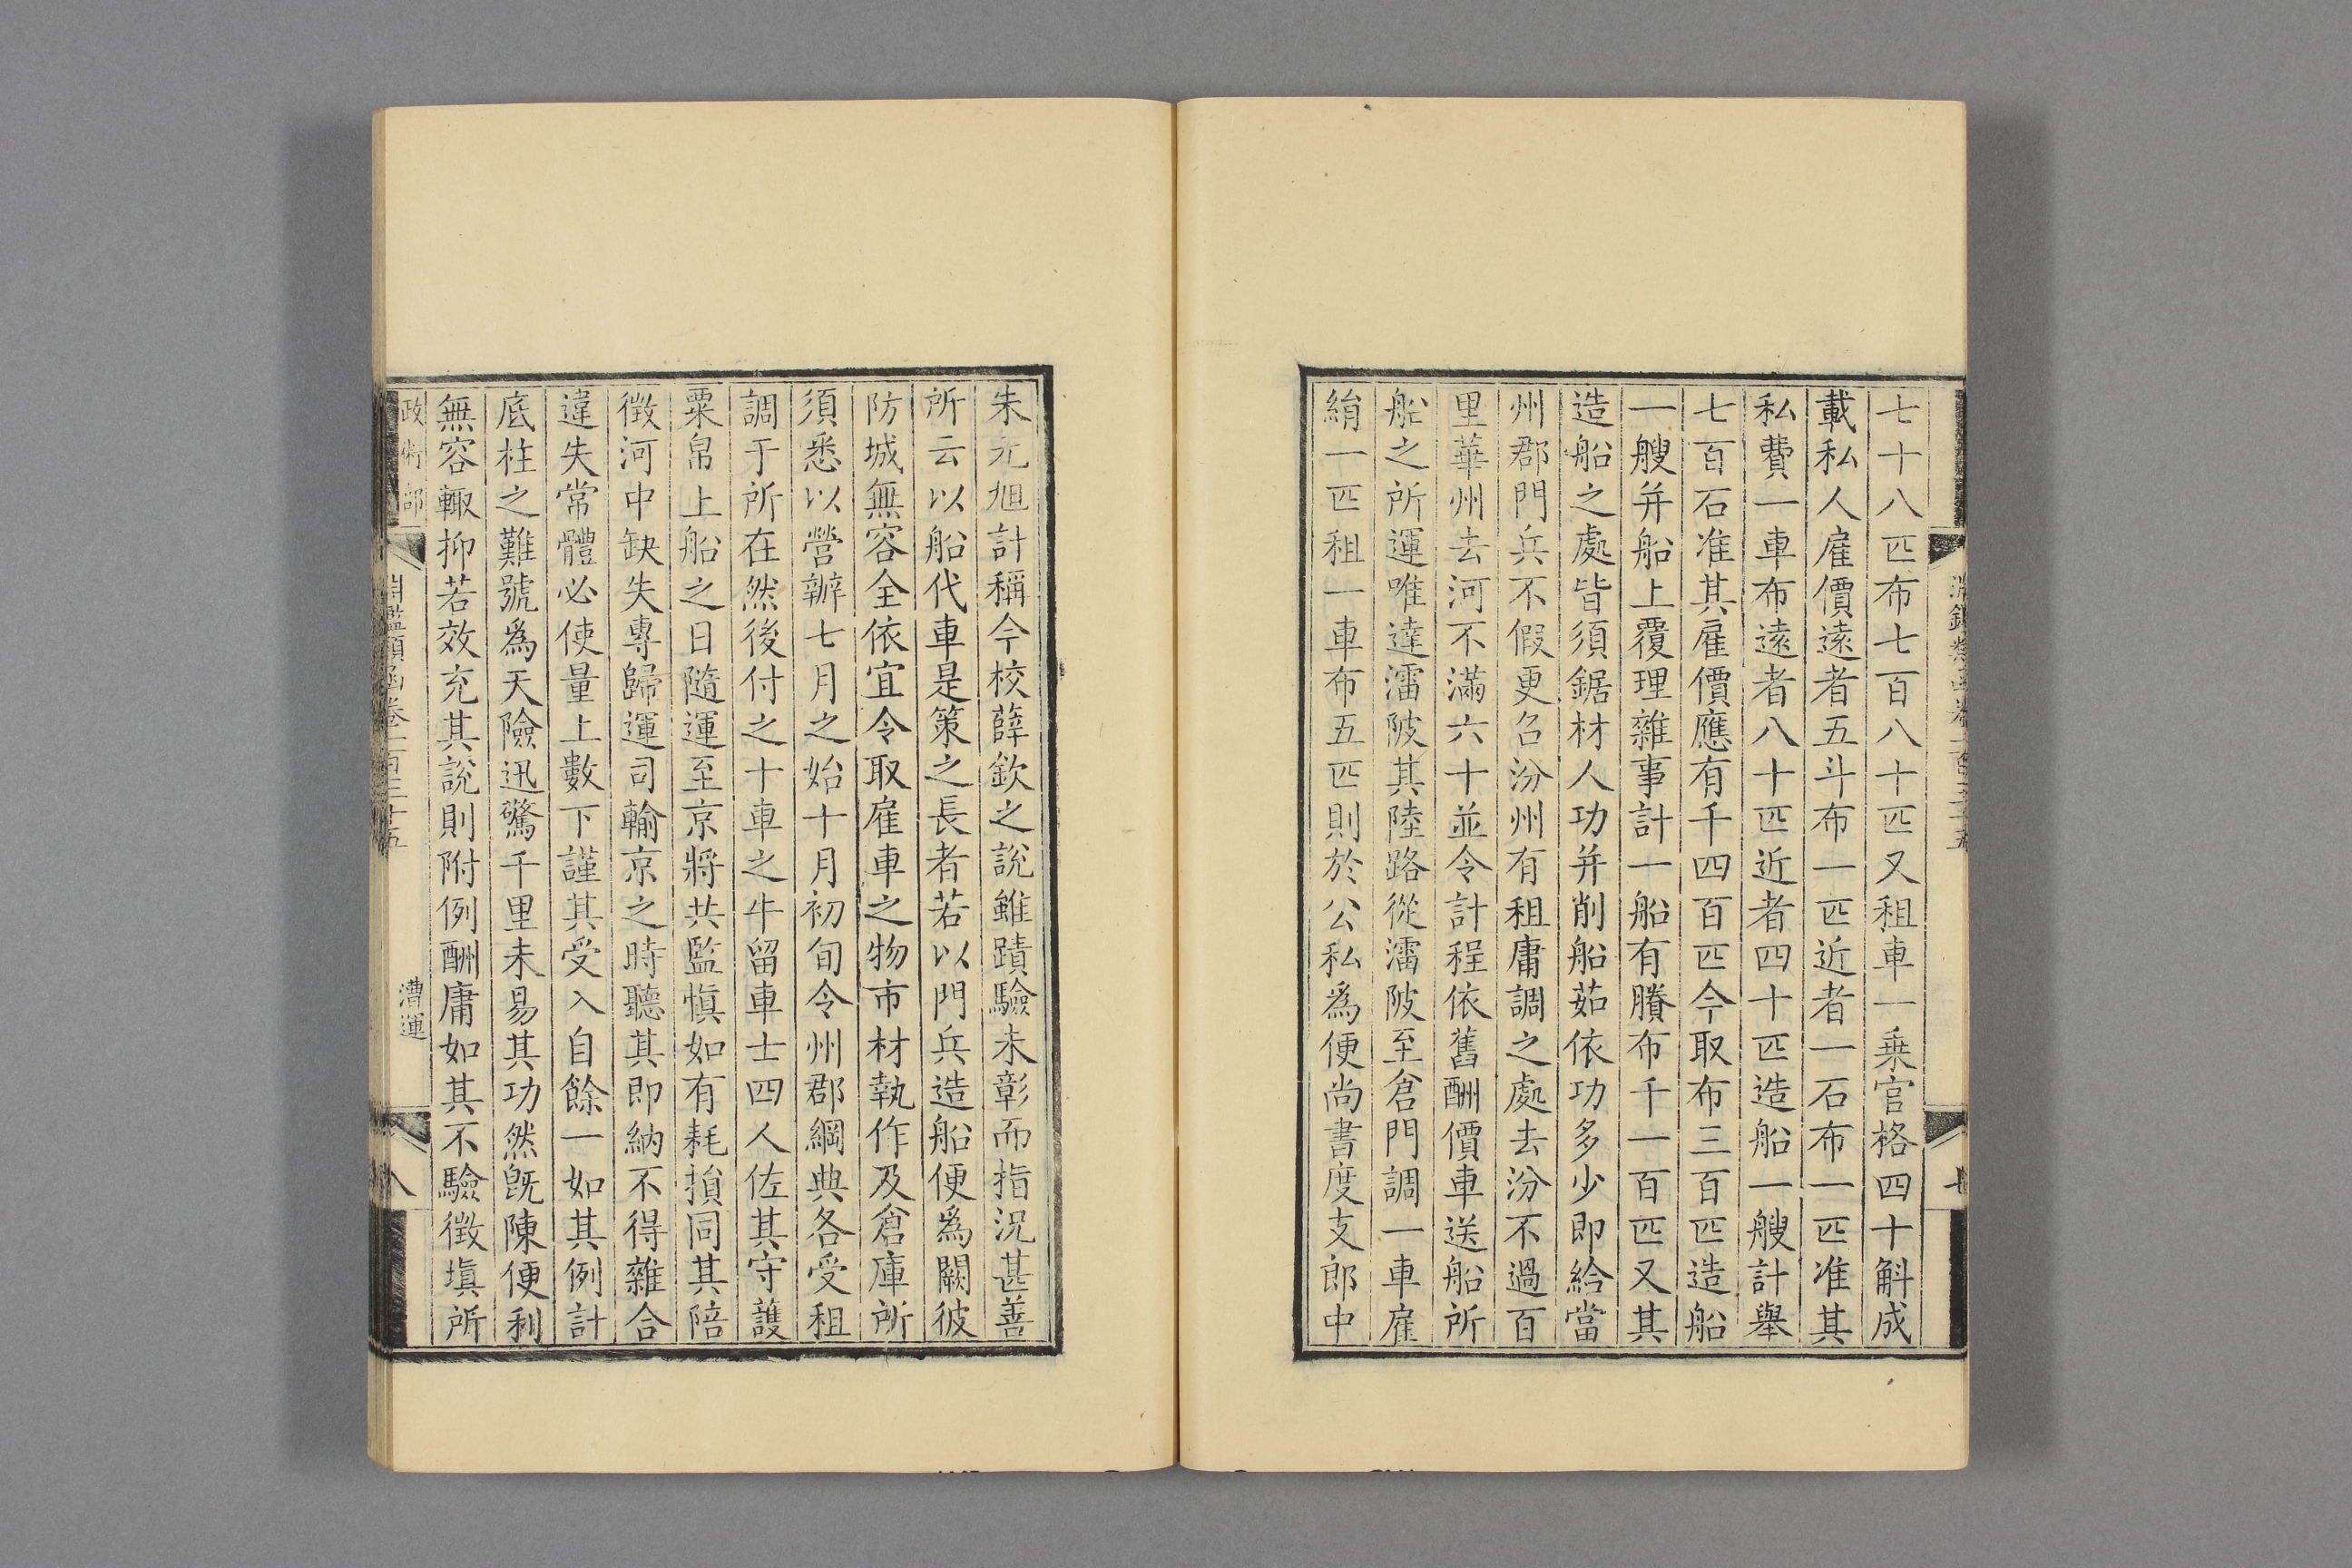 七十八匹布七百八十匹又租車一乗官格四十斛成
載私人雇價遠者五斗布一匹近者一石布一匹准其
私費一車布遠者八十匹近者四十匹造船一艘計舉
七百石准其雇價應有千四百匹今取布三百匹造船
一艘并船上覆理雜事計一船有賸布千一百匹又其
造船之處皆須鋸材人功并削船茹依功多少即給當
州郡門兵不假更召汾州有租庸調之處去汾不過百
里華州去河不滿六十並令計程依舊酬價車送船所
船之所運唯達灞陂其陸路從灞陂至倉門調一車雇
絹一匹租一車布五匹則於公私爲便尚書度支郎中
朱元旭計稱今校薛欽之說雖蹟驗未彰而指況甚善
所云以船代車是策之長者若以門兵造船便爲闕彼
防城無容全依宜令取雇車之物市材執作及倉庫所
須悉以營辦七月之始十月初旬令州郡綱典各受租
調于所在然後付之十車之中留車士四人佐其守護
粟帛上船之日隨運至京將共監愼如有耗損同其陪
徵河中缺失專歸運司輸京之時聽其即納不得雜合
違失常體必使量上數下謹其受入自餘一如其例計
底柱之難號爲天險迅驚千里未易其功然旣陳便利
無容輙抑若效充其說則附例酬庸如其不驗徵塡所
政術部
淵鑑類函卷一百三十五
漕運
八